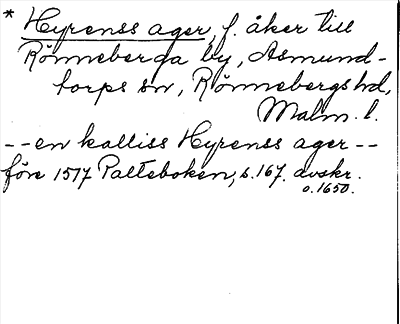 * Hyrenss ager, f. åker till
Rönneberga by, Asmund-
torps sn, Rönnebergs hd,
Malm. l.
-- en kalliss Hyrenss ager --
före 1517 Palteboken, s. 167. avskr.
o. 1650.